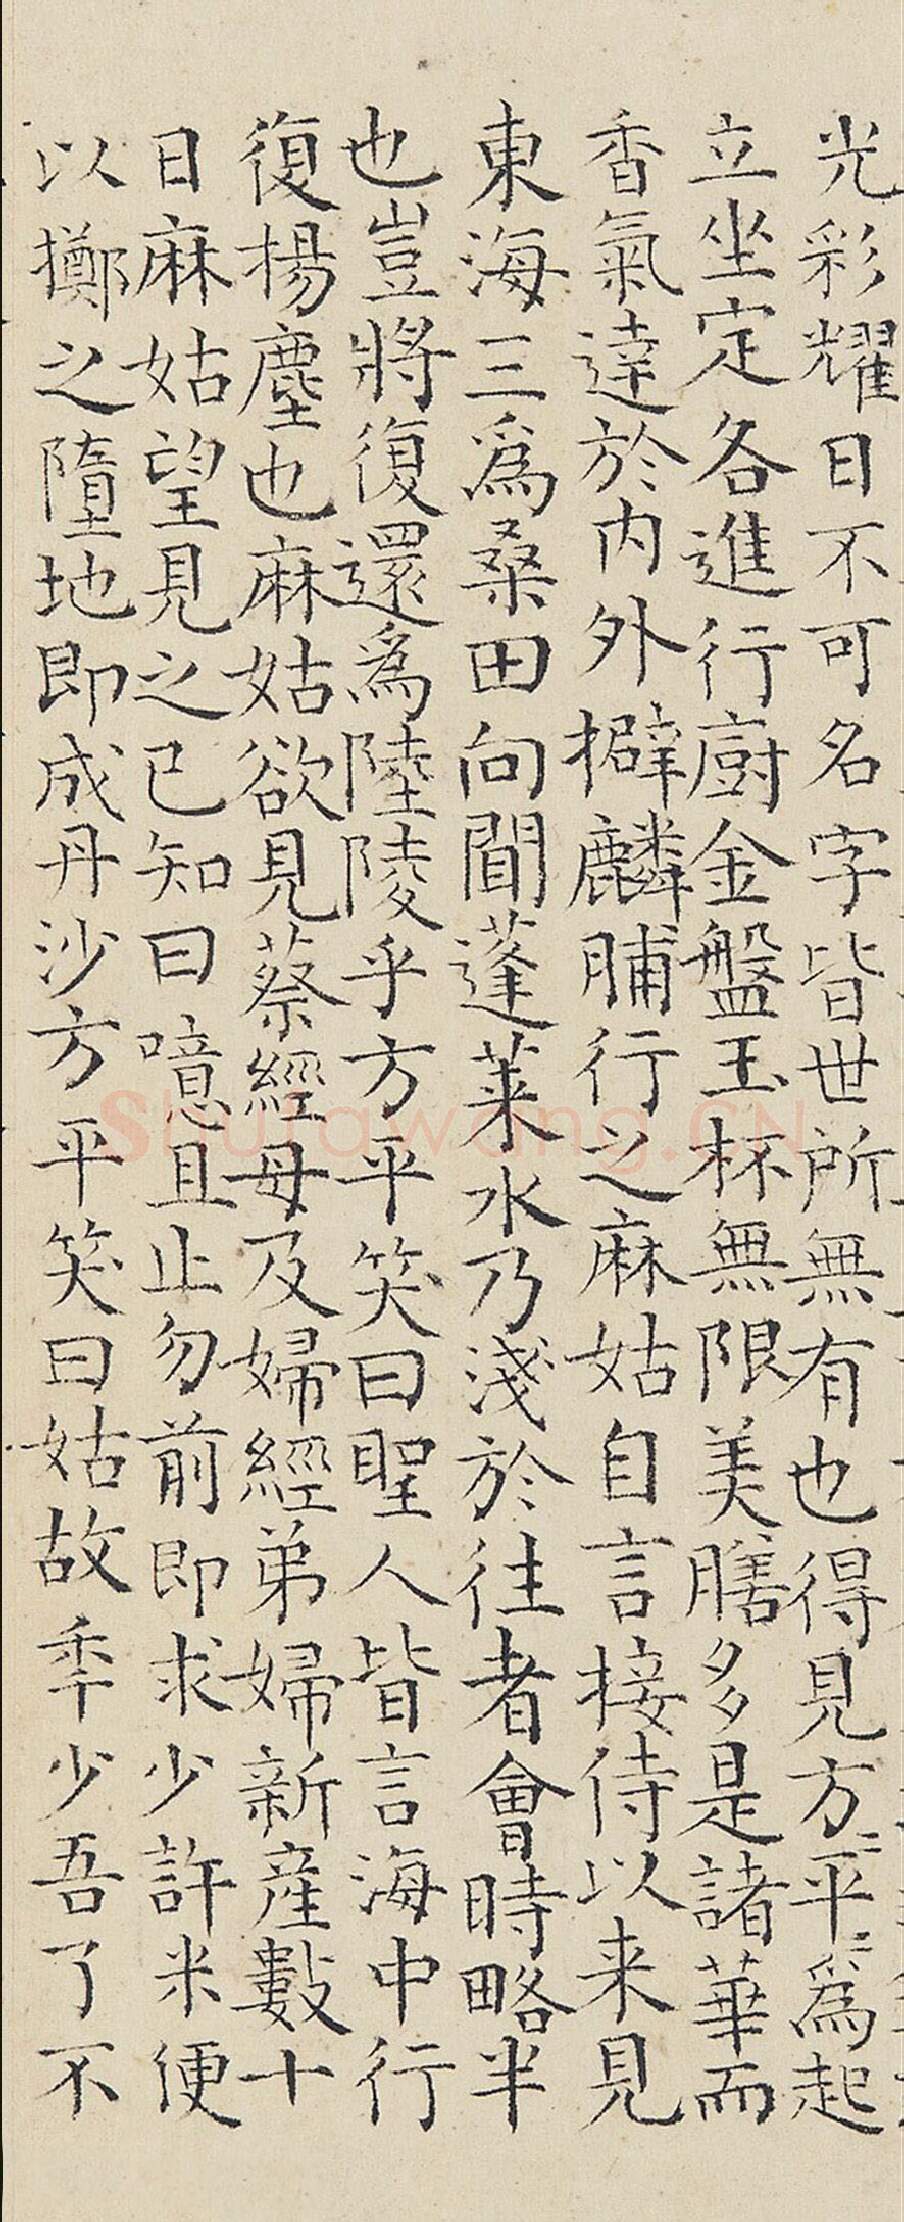 光彩耀日不可名字皆世所無有也得見方〻平〻爲起
立坐定各進行廚金盤玉杯無限美膳多是諸華而
香氣達於內外擗麟脯行之麻姑自言接待以来見
東海三爲桑田向間蓬萊水乃淺於往者會時略半
也豈將復還爲陸陵乎方平笑曰聖人皆言海中行
復揚塵也麻姑欲見蔡經母及婦經弟婦新產數十
日麻姑望見之已知曰噫且止勿前即求少許米便
以擲之墮地即成丹沙方平笑曰姑故秊少吾了不
shufawang.CN